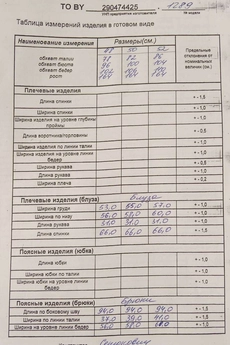 TO BY 290474425 1289
УНП предприятия изготовителя № модели
Таблица измерений изделия в готовом виде
Наименование измерения Размеры(см.) Предельные отклонения от номинальных величин (см.)
48 50 52
обхват талии 78 82 86
обхват бюста 96 100 104
обхват бедер 104
рост 164 164 164
Плечевые изделия
Длина спинки +-1,5
Ширина спинки +-1,0
Ширина изделия на уровне глубины проймы +-1,0
Длина воротника/горловины +-0,5
Ширина изделия по линии талии +-1,0
Ширина изделия на уровне линии бедер +-1,0
Ширина рукава +-0,5
Длина рукава +-1,0
Ширина плеча +-0,2
Плечевые изделия (блуза) Блуза
Ширина груди 53,0 55,0 57,0 +-1,0
Ширина по низу 56,0 58,0 60,0 +-1,0
Длина рукава 31,0 31,0 31,0 +-1,0
Длина спинки 66,0 66,0 66,0 +-1,5
Поясные изделия (юбка)
Длина юбки +-1,0
Ширина юбки по талии +-1,0
Ширина юбки на уровне линии бедер +-1,0
Поясные изделия (брюки) Брюки
Длина по боковому шву 94,0 94,0 94,0 +-1,5
Ширина по линии талии 37,0 39,0 41,0 +-1,0
Ширина на уровне линии бедер 56,0 58,0 60,0 +-1,0